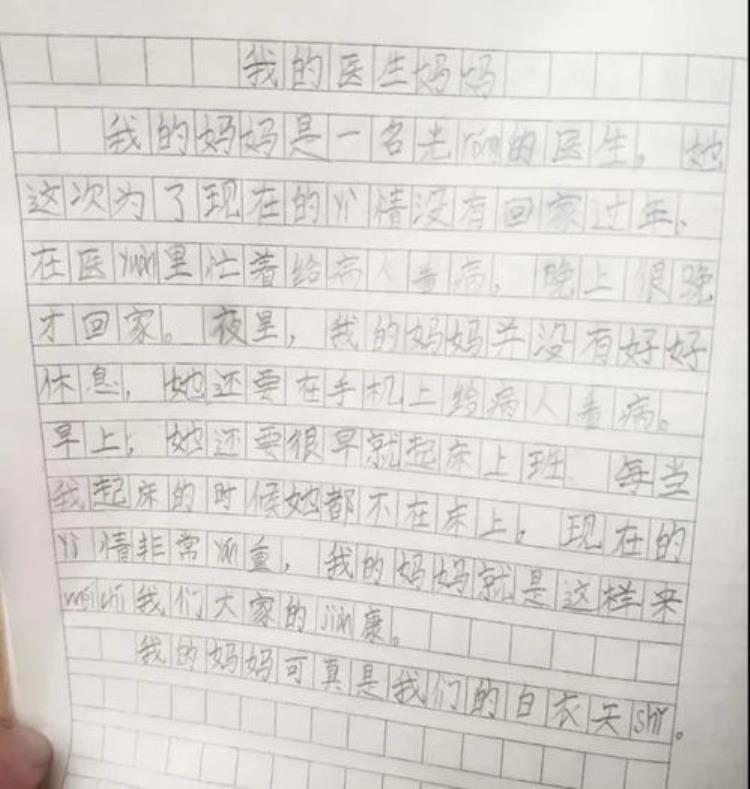 我的医生妈妈
我的妈妈是一名光róng的医生。她
这次为了现在的yì情没有回家过年、
在医yuàn里忙着给病人看病，晚上很晚
才回家。夜里，我的妈妈并没有好好
休息，她还要在手机上给病人看病。
早上，她还要很早就起床上班。每当
我起床的时候她都不在床上，现在的
yì情非常yán重，我的妈妈就是这样来
wéi chí我们大家的jiàn康。
我的妈妈可真是我们的白衣天shǐ。